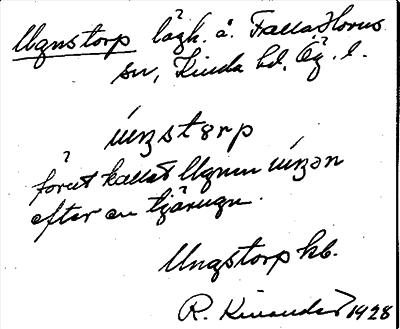 Ugnstorp lägh. å. Falla, Horns
sn, Kinda hd, Ög. l.
úŋstərp
förut kallat Ugnen úŋən
efter en tjärugn.
Ungstorp kb.
R. Kinander 1928